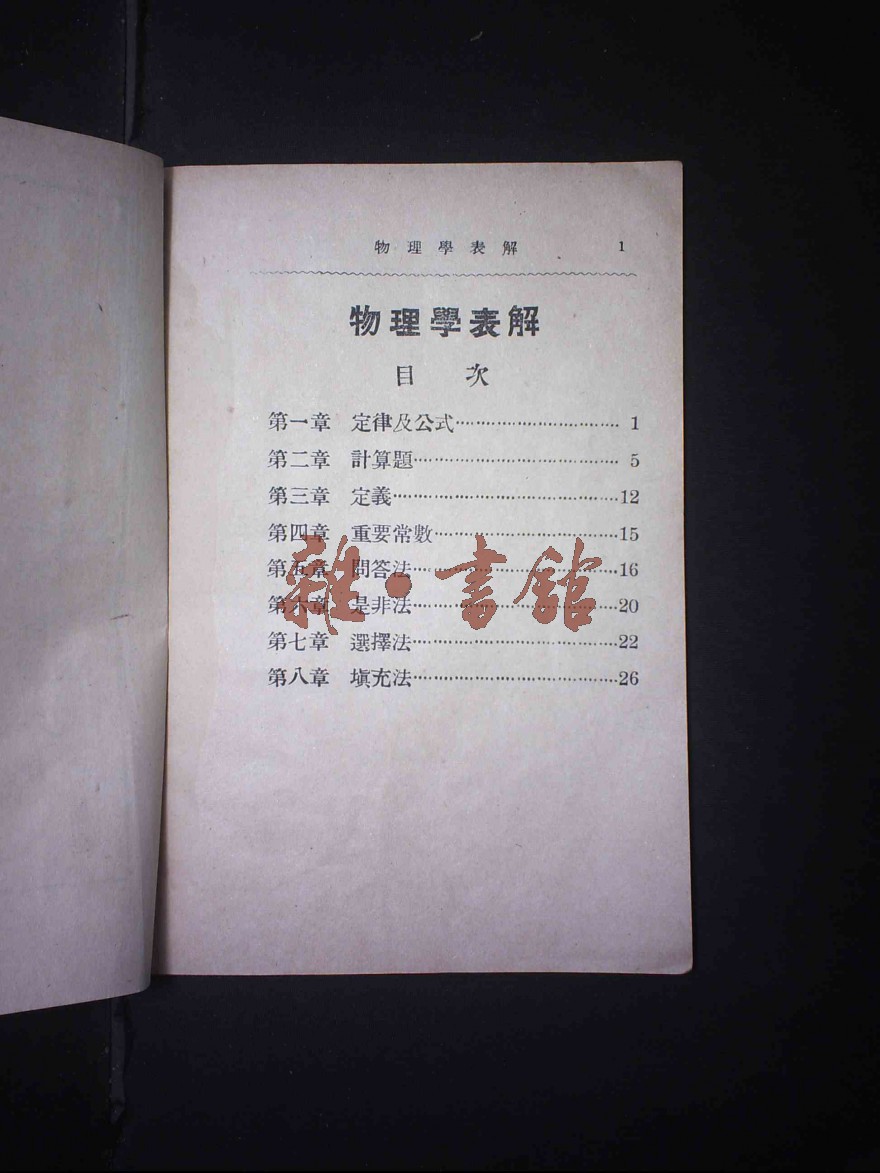 物理學表解 1
物理學表解
目次
第一章 定律及公式…………………………1
第二章 計算題…………………………5
第三章 定義…………………………12
第四章 重要常數…………………………15
第五章 問答法…………………………16
第六章 是非法…………………………20
第七章 選擇法…………………………22
第八章 填充法…………………………26
雜·書館